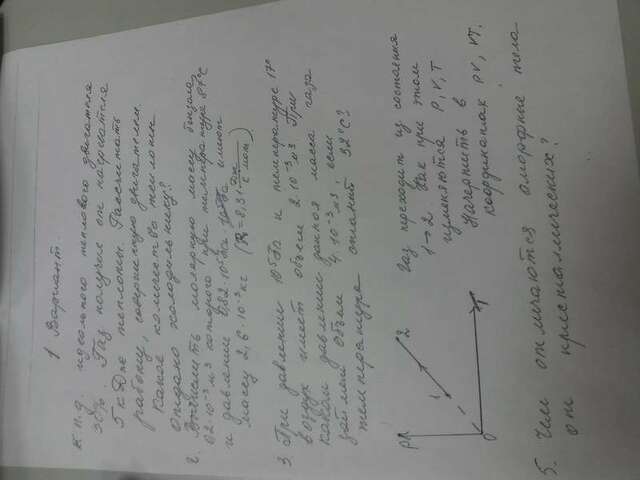 1 Вариант.
К.п.д. идеального теплового двигателя
30%. Газ получил от нагревателя
5 кДж теплоты. Рассчитать
работу, совершенную двигателем.
Какое количество теплоты
отдано холодильнику?
2. Вычислить молярную массу
0,2·10⁻³ м³ которого при температуре
и давлении имеют
массу 2,6·10⁻³ кг (R = 8,31 Дж/
3 При давлении 10⁵ Па и температуре 17°
воздух имеет объем 2·10⁻³ м³ При
каком давлении данная масса газа
займет объем 4·10⁻³ м³ если
температура станет 52°C?
P
1
2
0
T
Газ переходит из состояния
1→2. Как при этом
изменяются P, V, T
Начертить в
координатах PV, VT.
5. Чем отличаются аморфные тела
от кристаллических?